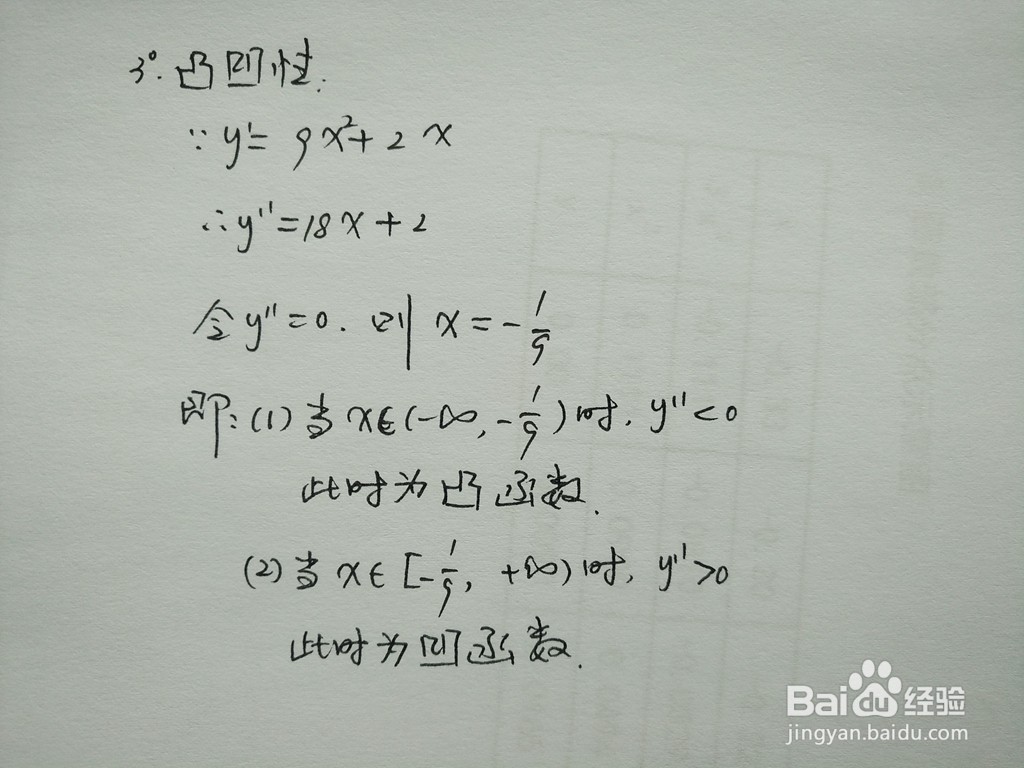 3°. 凸凹性.
∵ y' = 9x²+2x
∴ y''=18x+2
令y''=0. 则 x=-1/9
即: (1) 当 x∈(-∞, -1/9) 时, y''<0
此时为凸函数.
(2) 当 x∈[-1/9, +∞) 时, y''>0
此时为凹函数.
Baidu经验
jingyan.baidu.com